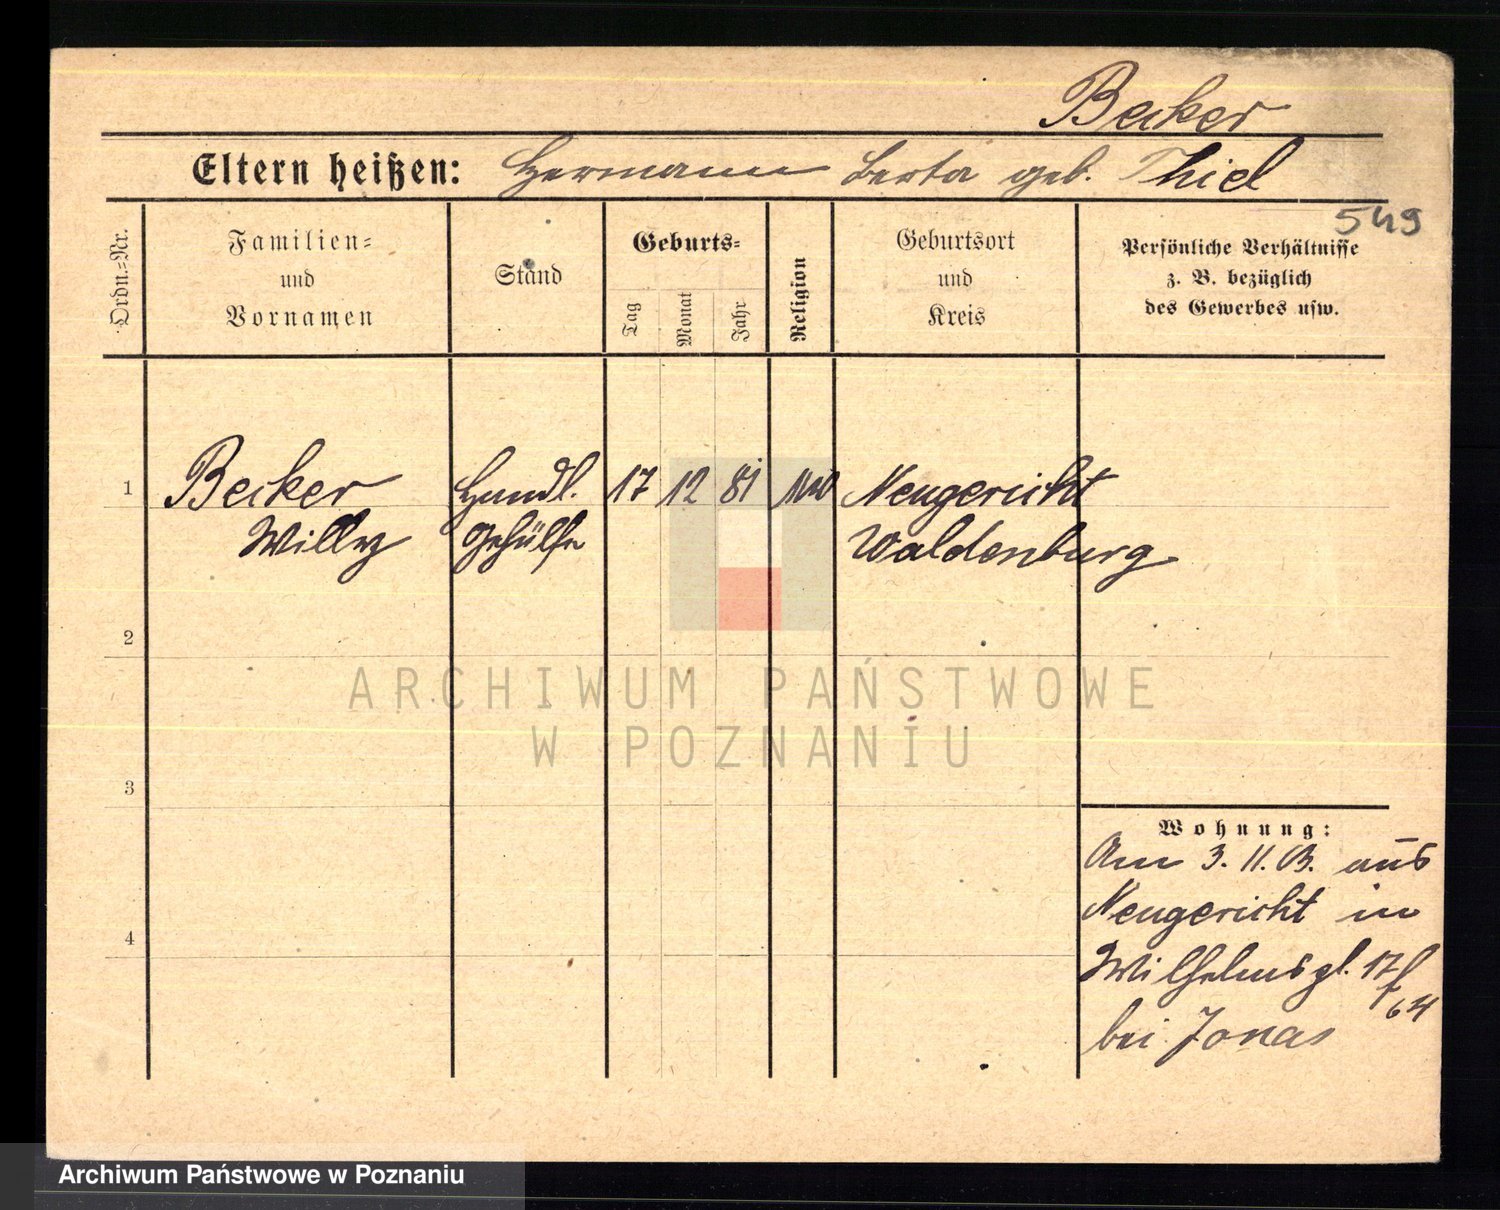 Becker
Eltern heißen: Hermann Berta geb. Thiel
549
Ordn.=Nr.
Familien=
und
Vornamen
Stand
Geburts=
Tag
Monat
Jahr
Religion
Geburtsort
und
Kreis
Persönliche Verhältnisse
z. B. bezüglich
des Gewerbes usw.
1 Becker Handl. 17 12 81 Neugericht
Willy Gehülfe Waldenburg
2
3
4
Wohnung:
Am 3. 11. 03. aus
Neugericht in
Wilhelmspl. 17
bei Jonas
ARCHIWUM PAŃSTWOWE
W POZNANIU
Archiwum Państwowe w Poznaniu